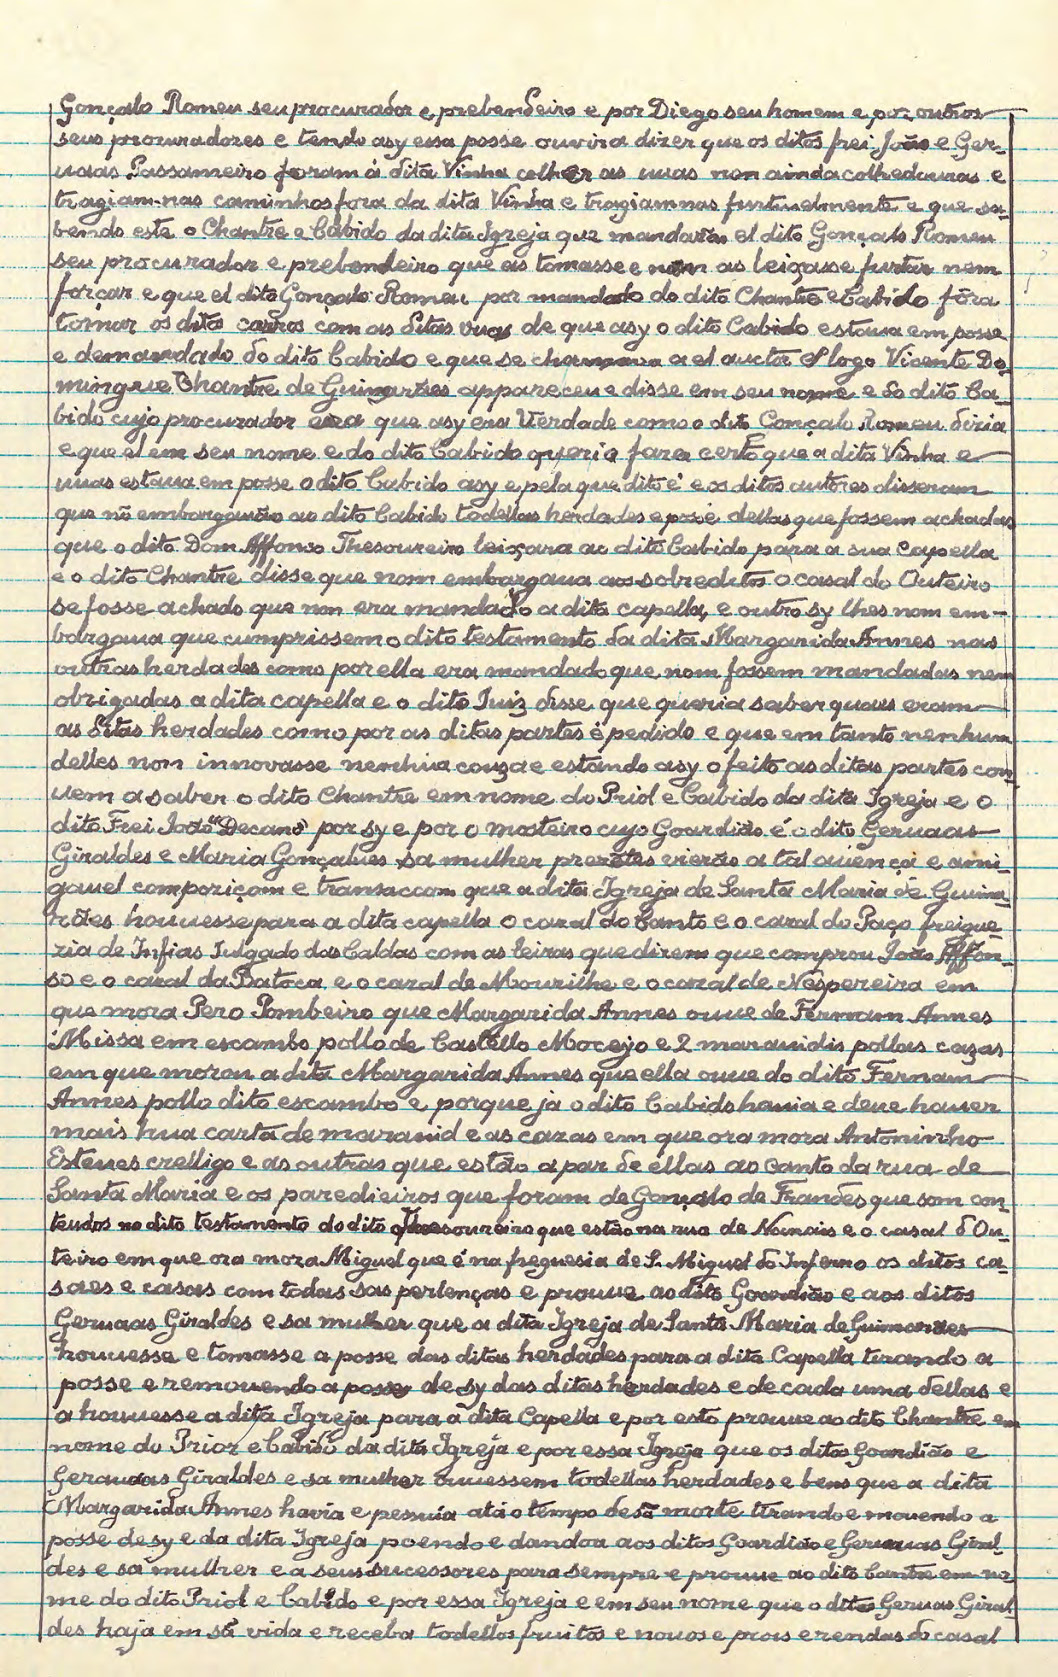 Gonçalo Romeu seu procurador e prebendeiro e por Diego seu homem e por outros
seus procuradores e tendo asy essa posse ouvira dizer que os ditos frei João e Ger-
uaas Passameiro foram á dita Vinha colher as uuas non ainda colhedouras e
tragiam-nas caminhos fora da dita Vinha e tragiamnas furtuelmente e que sa-
bendo este o Chantre e Cabido da dita Igreja que mandarão el dito Gonçalo Romeu
seu procurador e prebendeiro que as tomasse e nom as leixasse furtar nem
forçar e que el dito Gonçalo Romeu por mandado do dito Chantre e Cabido fôra
tomar os ditos carros com as ditas uuas de que asy o dito Cabido estaua em posse
e demandado do dito Cabido e que se chamava a el auctor E logo Vicente Do-
mingue Chantre de Guimarães appareceu e disse em seu nome e do dito Ca-
bido cujo procurador era que asy era Verdade como o dito Gonçalo Romeu diria
e que el em seu nome e do dito Cabido queria fazer certo que a dita Vinha e
uuas estaua em posse o dito Cabido asy e pela que dito é e os ditos autores disseram
que nõ embargauão ao dito Cabido todellas herdades e posse dellas que fossem achadas
que o dito Dom Affonso Thesoureiro leixara ao dito Cabido para a sua Capella
e o dito Chantre disse que nom embargaua aos sobreditos o casal do Outeiro
se fosse achado que non era mandado a dita capella, e outro sy lhes nom em-
bargaua que cumprissem o dito testamento da dita Margarida Annes nas
outras herdades como por ella era mandado que nom fossem mandadas nem
obrigadas a dita capella e o dito Juiz disse que queria saber quaes eram
as ditas herdades como por as ditas partes é pedido e que em tanto nenhum
delles non innovasse nenhũa couza e estando asy o feito as ditas partes con-
uem a saber o dito Chantre em nome do Priol e Cabido da dita Igreja e o
dito Frei João "Decano" por sy e por o mosteiro cujo Goardião é o dito Geruaas
Giraldes e Maria Gonçalues sa mulher prezẽtes vierão a tal auença e ami-
gauel compoziçom e transaccom que a dita Igreja de Santa Maria de Guima-
rães houuesse para a dita capella o cazal do Canto e o cazal do Paço freigue-
zia de Infias Julgado das Caldas com as leiras que dizem que comprou João Affon-
so e o cazal da Batoca e o cazal de Mourilhe e o cazal de Nespereira em
que mora Pero Pombeiro que Margarida Annes ouue de Fernam Annes
Missa em escambo pollo de Castello Mocejo e 2 marauidis pollas cazas
em que morou a dita Margarida Annes que ella ouue do dito Fernam
Annes pollo dito escambo e porque ja o dito Cabido hauia e deue hauer
mais hua carta de marauid e as cazas em que ora mora Antoninho
Esteues crelligo e as outras que estão a par de ellas ao canto da rua de
Santa Maria e os paredieiros que foram de Gonçalo de Frandes que som con-
teudos no dito testamento do dito Thesoureiro que estão na rua de Nomais e o casal d'Ou-
teiro em que ora mora Miguel que é na freguesia de S. Miguel do Inferno os ditos ca-
saes e casas com todas sas pertenças e prouue ao dito Goardião e aos ditos
Geruaas Giraldes e sa mulher que a dita Igreja de Santa Maria de Guimarães
houuesse e tomasse a posse das ditas herdades para a dita Capella tirando a
posse e remouendo a posse de sy das ditas herdades e de cada uma dellas e
a houuesse a dita Igreja para a dita Capella e por esto prouue ao dito Chantre em
nome do Prior e Cabido da dita Igreja e por essa Igreja que os ditos Goardião e
Geruaas Giraldes e sa mulher ouuessem todellas herdades e bens que a dita
Margarida Annes havia e pessuia atá o tempo de sa morte tirando e mouendo a
posse de sy e da dita Igreja poendo e dandoa aos ditos Goardião e Geruaas Giral-
des e sa mulher e a seus sucessores para sempre e prouue ao dito Cantre em no-
me do dito Priol e Cabido e por essa Igreja e em seu nome que o dito Geruas Giral-
des haja em sa vida e receba todellos fruitos e nouos e prois e rendas do casal